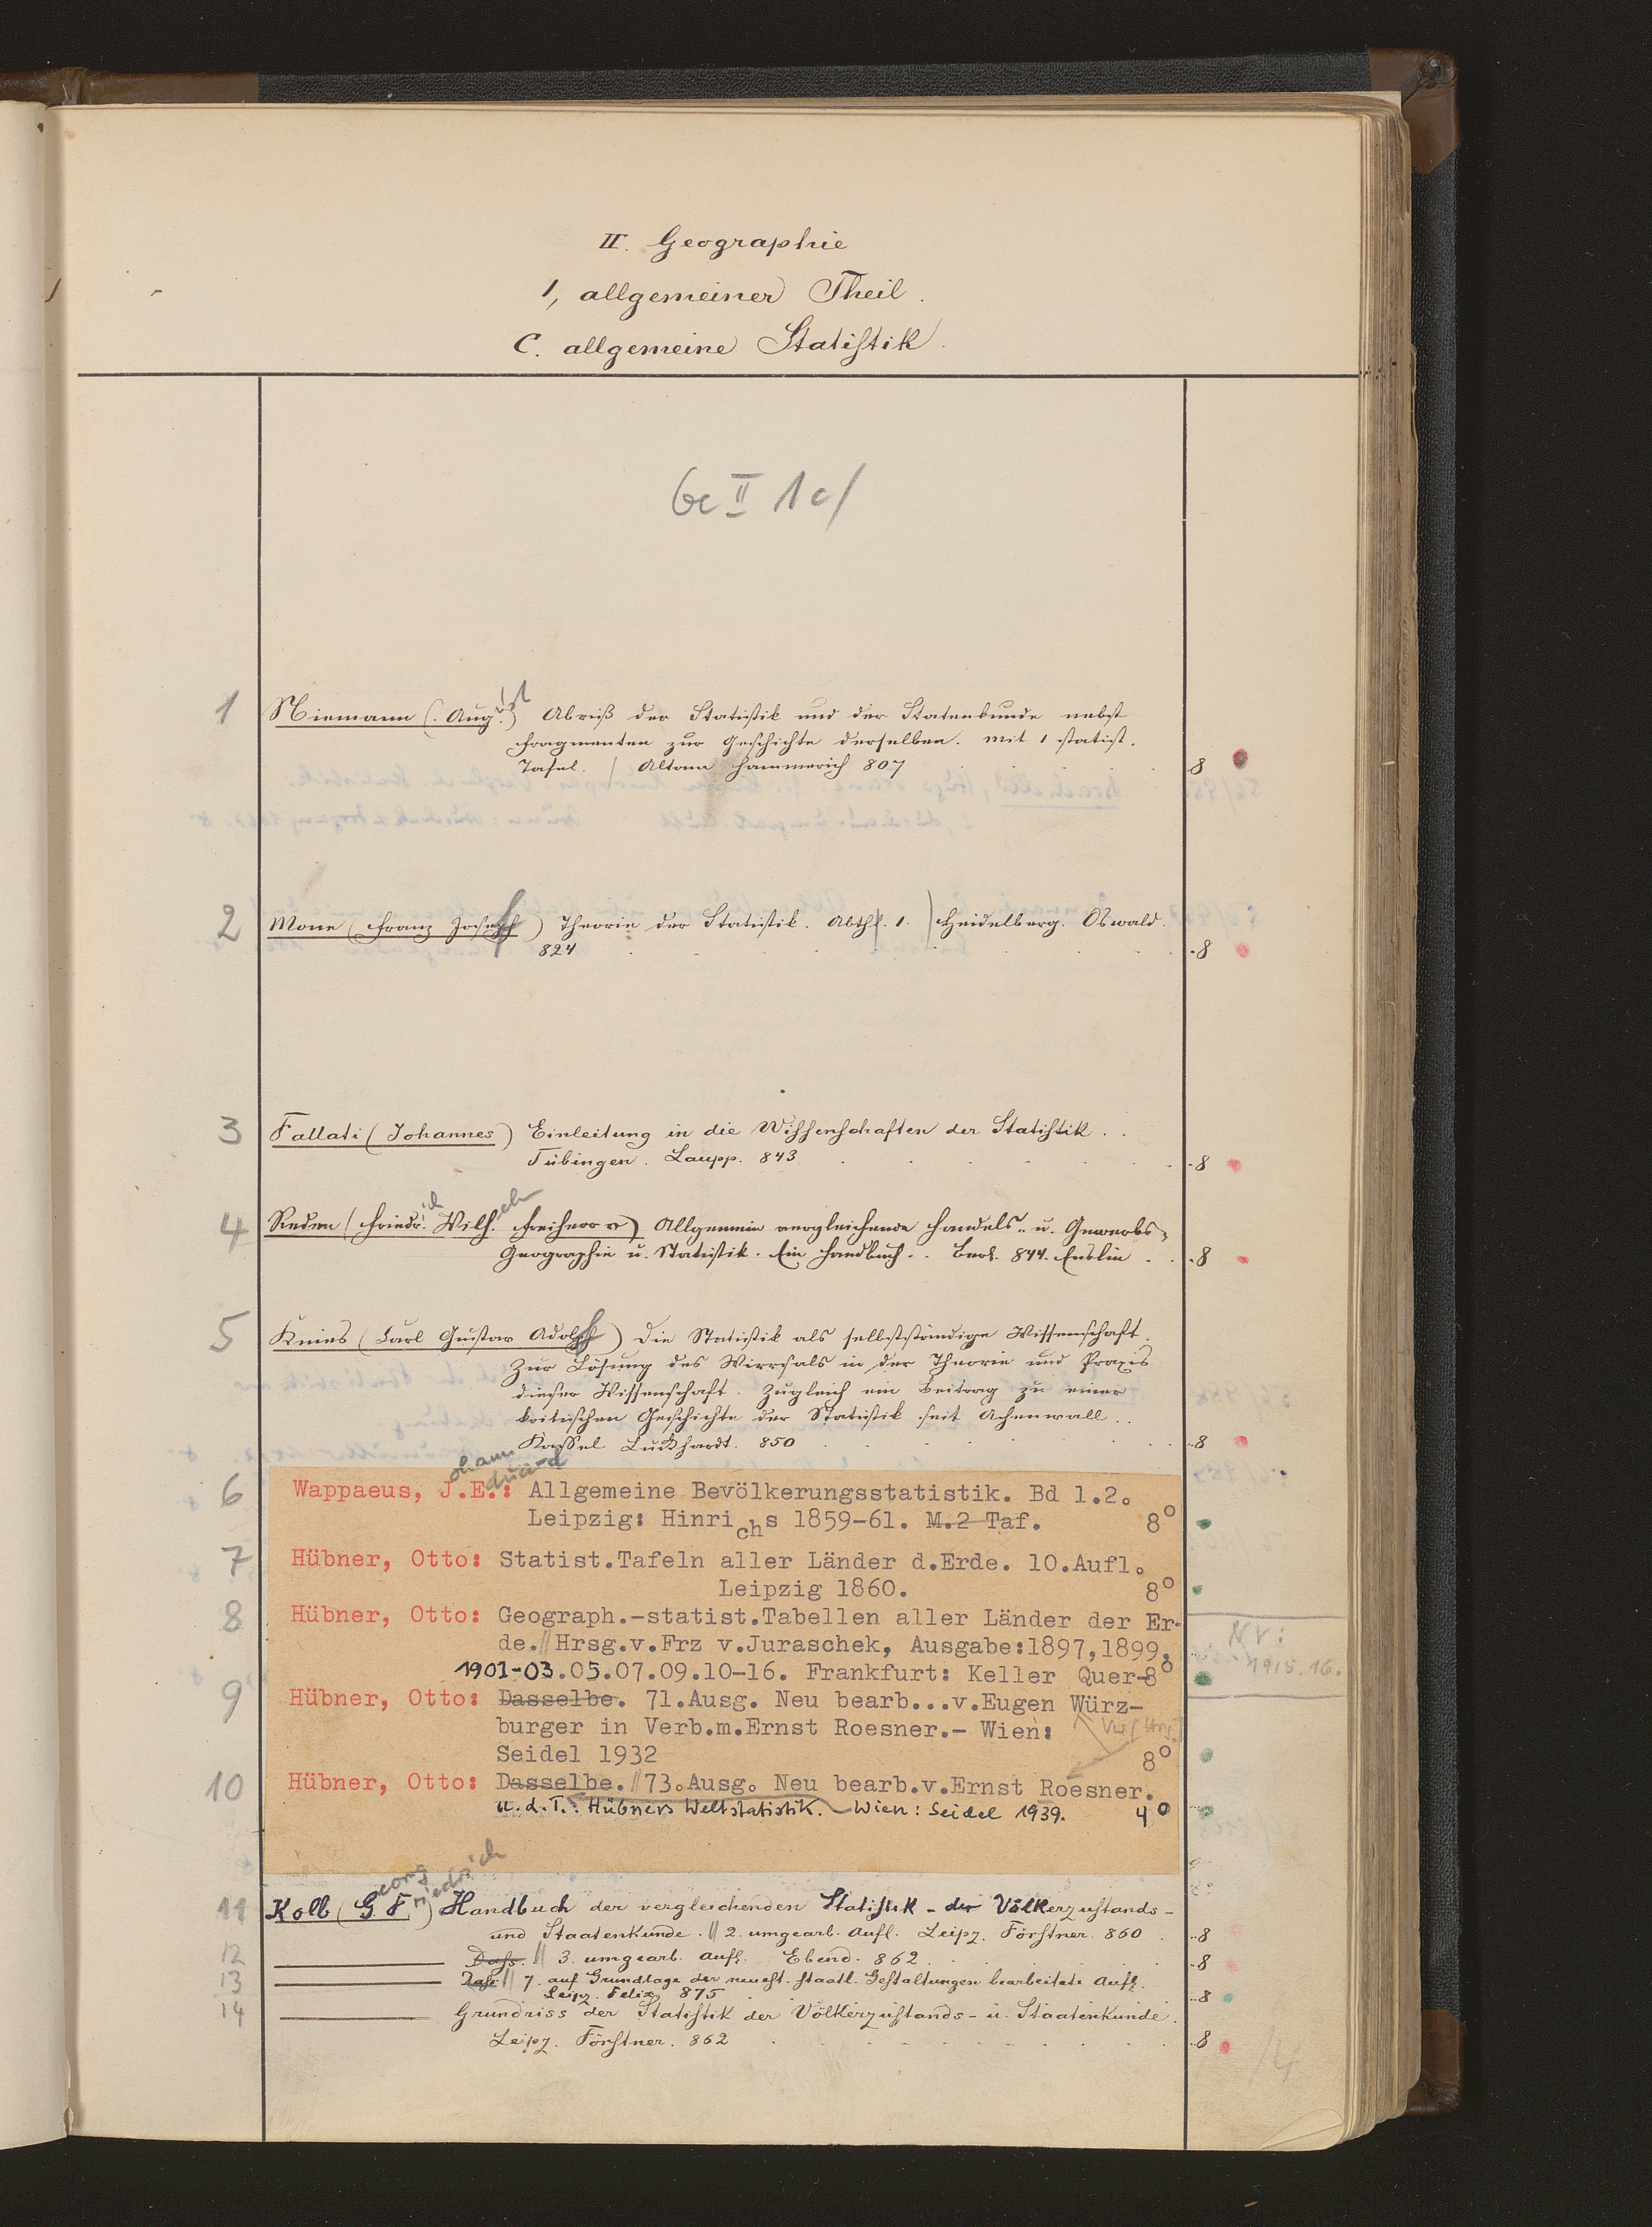 II. Geographie
1, allgemeiner Theil.
C. allgemeine Statistik.
Ge II 1c/
1 Niemann (Aug.ust) Abriß der Statistik und der Statenkunde nebst
Fragmenten zur Geschichte derselben. Mit 1 statist.
Tafel. / Altona Hammerich 807 8
2 Mone (Franz Joseph) Theorie der Statistik. Abthl. 1. Heidelberg. Oswald.
824 8
3 Fallati (Johannes) Einleitung in die Wissenschaften der Statistik.
Tübingen. Laupp. 843 8
4 Reden (Friedr.ich Wilh.elm Freiherr v) Allgemein vergleichende Handels- u. Gewerbs-
Geographie u. Statistik. Ein Handbuch. Berl. 844. Enslin 8
5 Knies (Carl Gustav Adolph) Die Statistik als selbstständige Wissenschaft.
Zur Lösung des Wirrsals in der Theorie und Praxis
dieser Wissenschaft. Zugleich ein Beitrag zu einer
kritischen Geschichte der Statistik seit Achenwall.
Kassel Luckhardt. 850 8
ohann duard
6 Wappaeus, J.E.: Allgemeine Bevölkerungsstatistik. Bd 1.2.
Leipzig: Hinrichs 1859-61. M.2 Taf. 8°
7 Hübner, Otto: Statist.Tafeln aller Länder d.Erde. 10.Aufl.
Leipzig 1860. 8°
8 Hübner, Otto: Geograph.-statist.Tabellen aller Länder der Er-
de.//Hrsg.v.Frz v.Juraschek, Ausgabe:1897,1899,
NV:
1915.16.
1901-03.05.07.09.10-16. Frankfurt: Keller Quer-8°
9 Hübner, Otto: Dasselbe. 71.Ausg. Neu bearb...v.Eugen Würz-
burger in Verb.m.Ernst Roesner.- Wien:
Seidel 1932 8°
10 Hübner, Otto: Dasselbe.//73.Ausg. Neu bearb.v.Ernst Roesner.
u.d.T.: Hübners Weltstatistik. Wien: Seidel 1939. 4°
eorg riedrich
11 Kolb (G. F.) Handbuch der vergleichenden Statistik - der Völkerzustands-
und Staatenkunde. // 2. umgearb. Aufl. Leipz. Förstner. 860 8
12 Dass. // 3. umgearb. Aufl. Ebend. 862 8
13 Dass. // 7. auf Grundlage der neuest. staatl. Gestaltungen bearbeitete Aufl.
Leipz. Felix 875 8
14 Grundriss der Statistik der Völkerzustands- u. Staatenkunde.
Leipz. Förstner. 862 8
14